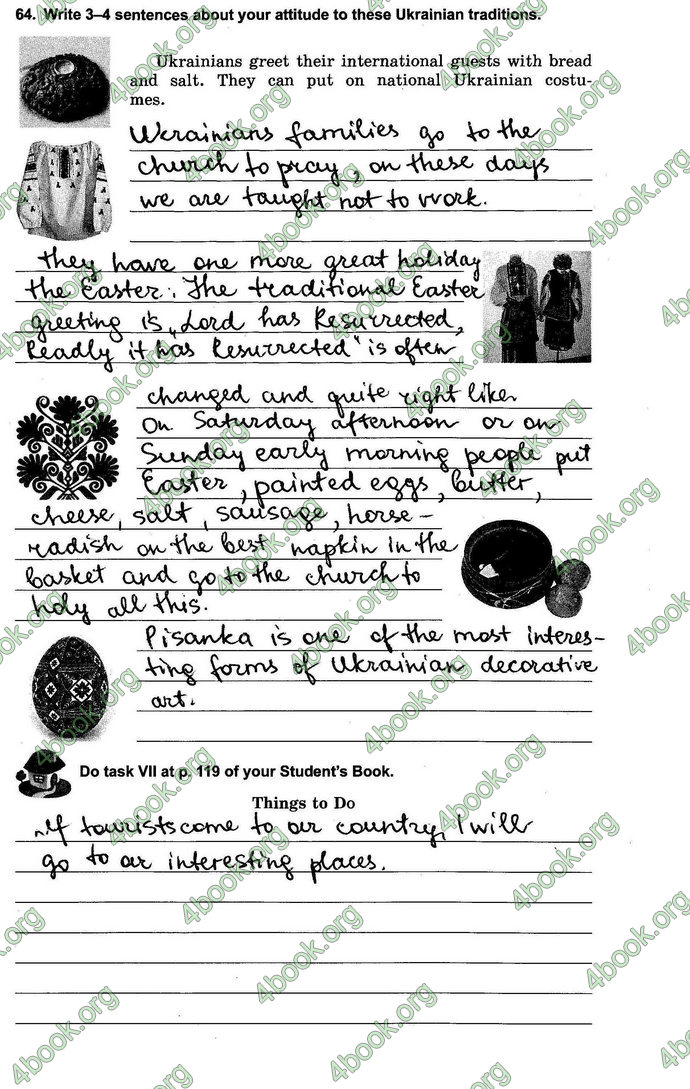 64. Write 3–4 sentences about your attitude to these Ukrainian traditions.
Ukrainians greet their international guests with bread
and salt. They can put on national Ukrainian costu-
mes.
Ukrainians families go to the
church to pray, on these days
we are taught not to work.
they have one more great holiday
the Easter. The traditional Easter
greeting is „Lord has Resurrected,
Readly it has Resurrected" is often
changed and quite right like
On Saturday afternoon or on
Sunday early morning people put
Easter, painted eggs, butter,
cheese, salt, sausage, horse-
radish on the best napkin in the
basket and go to the church to
holy all this.
Pisanka is one of the most interes-
ting forms of Ukrainian decorative
art.
Do task VII at p. 119 of your Student's Book.
Things to Do
If tourists come to our country, I will
go to our interesting places.
4book.org